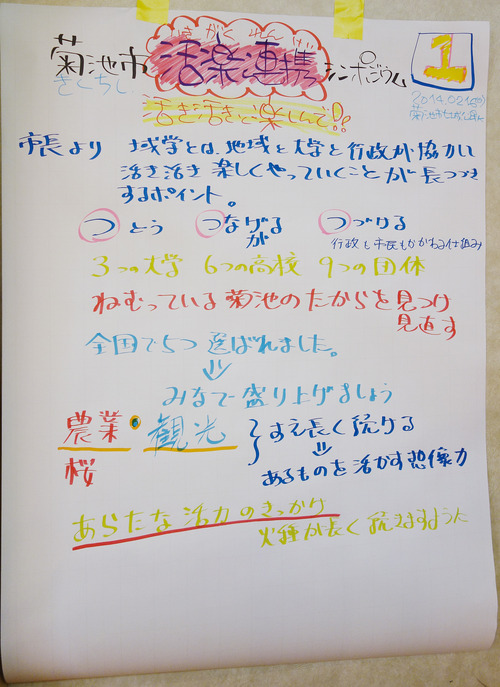 いきがくれんけい
菊池市 活楽連携 シンポジウム 1
きくちし
活き活きと楽しんで!!
2014.02.16(日)
市長より 域学とは、地域と大学と行政が協力し
活き活き 楽しくやっていくことが長つづき
するポイント。
つどう つなげる つづける
が 行政も市民もかかわる仕組み
3つの大学 6つの高校 9つの団体
ねむっている菊池のたからを見つけ
見直す
全国で5つ選ばれました。
みなで盛り上げましょう
農業・観光 すえ長く続ける
桜 あるものを活かす想像力
あらたな活力のきっかけ
火種が長く続きますように